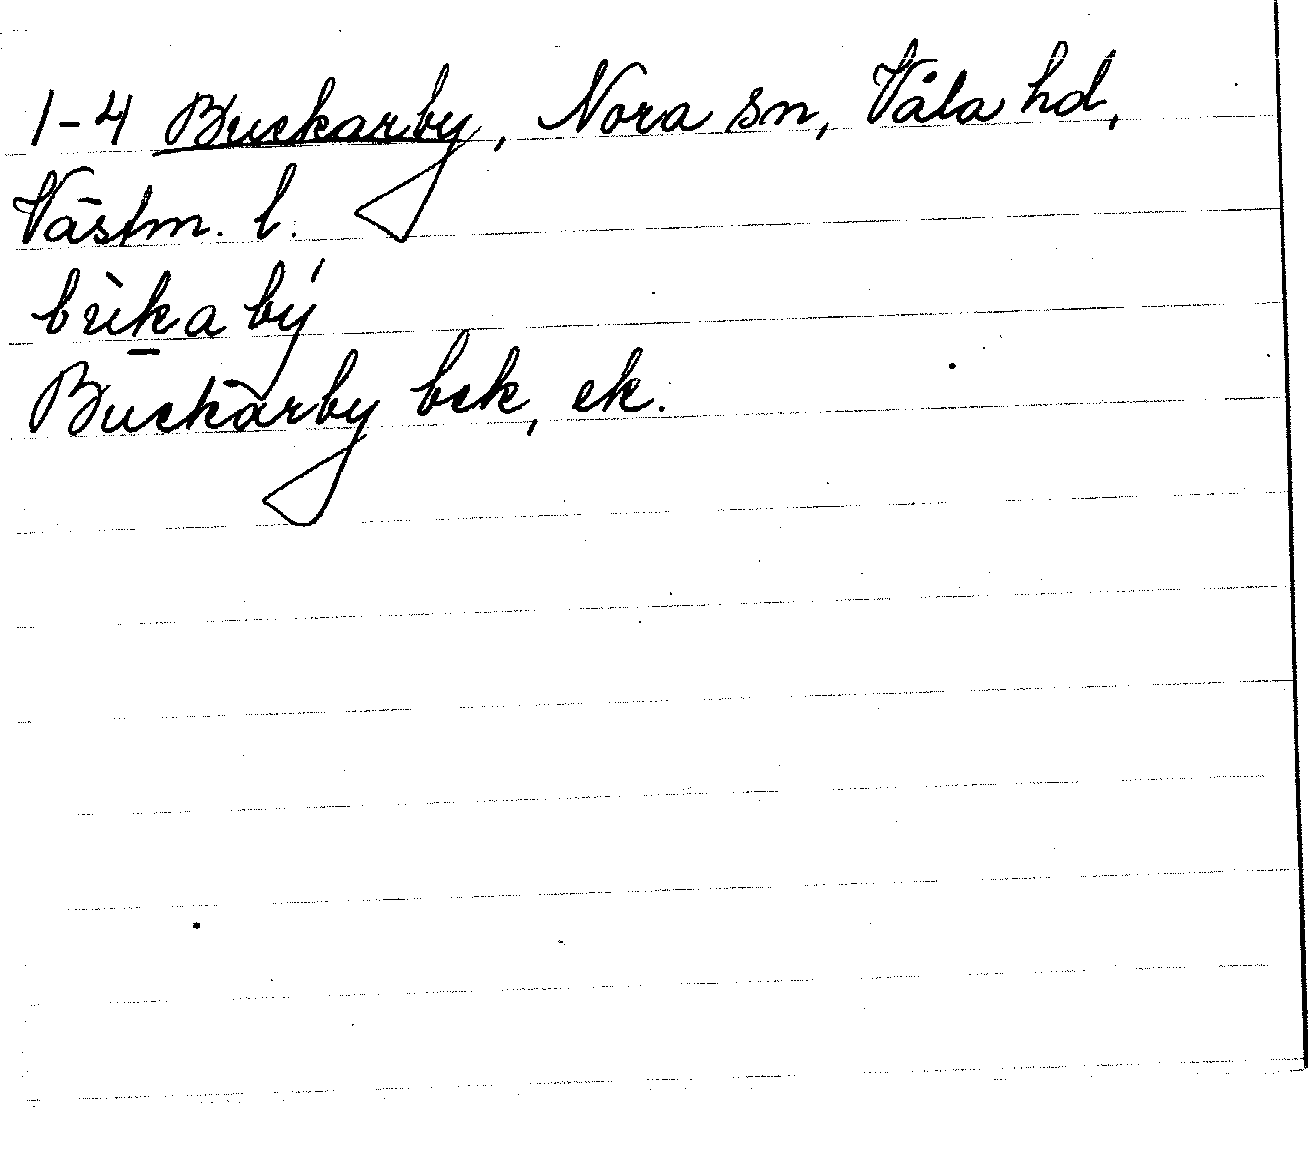 1-4 Buckarby, Nora sn, Våla hd,
Västm. l.
bùkabý
Buckarby bek, ek.